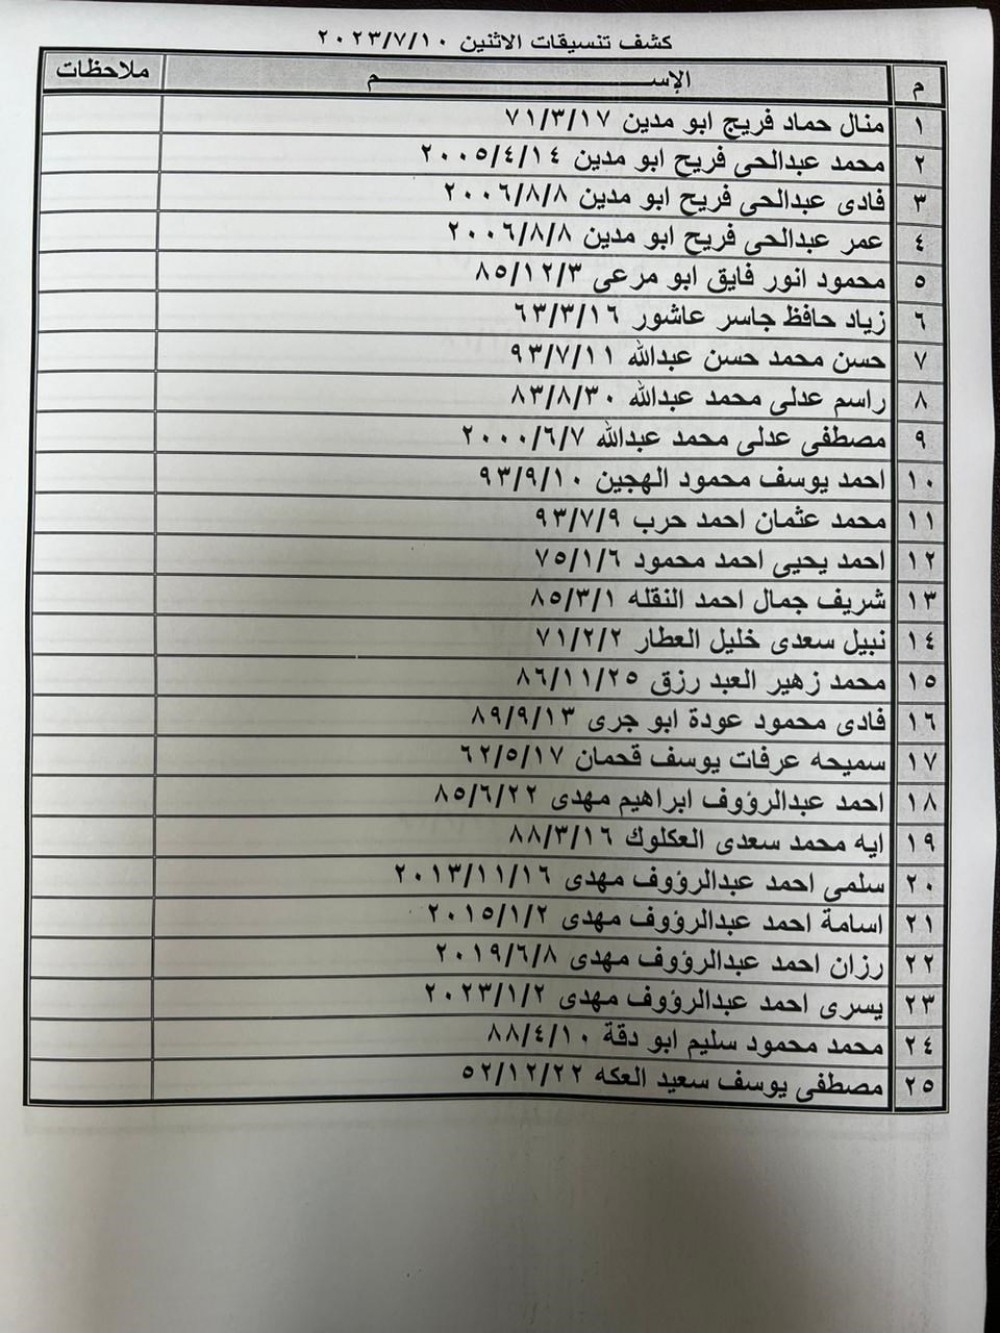 كشف تنسيقات الاثنين ٢٠٢٣/٧/١٠
م الإســـــــــــــــــــــــم ملاحظات
١ منال حماد فريج ابو مدين ٧١/٣/١٧
٢ محمد عبدالحى فريح ابو مدين ٢٠٠٥/٤/١٤
٣ فادى عبدالحى فريح ابو مدين ٢٠٠٦/٨/٨
٤ عمر عبدالحى فريح ابو مدين ٢٠٠٦/٨/٨
٥ محمود انور فايق ابو مرعى ٨٥/١٢/٣
٦ زياد حافظ جاسر عاشور ٦٣/٣/١٦
٧ حسن محمد حسن عبدالله ٩٣/٧/١١
٨ راسم عدلى محمد عبدالله ٨٣/٨/٣٠
٩ مصطفى عدلى محمد عبدالله ٢٠٠٠/٦/٧
١٠ احمد يوسف محمود الهجين ٩٣/٩/١٠
١١ محمد عثمان احمد حرب ٩٣/٧/٩
١٢ احمد يحيى احمد محمود ٧٥/١/٦
١٣ شريف جمال احمد النقله ٨٥/٣/١
١٤ نبيل سعدى خليل العطار ٧١/٢/٢
١٥ محمد زهير العبد رزق ٨٦/١١/٢٥
١٦ فادى محمود عودة ابو جرى ٨٩/٩/١٣
١٧ سميحه عرفات يوسف قحمان ٦٢/٥/١٧
١٨ احمد عبدالرؤوف ابراهيم مهدى ٨٥/٦/٢٢
١٩ ايه محمد سعدى العكلوك ٨٨/٣/١٦
٢٠ سلمى احمد عبدالرؤوف مهدى ٢٠١٣/١١/١٦
٢١ اسامة احمد عبدالرؤوف مهدى ٢٠١٥/١/٢
٢٢ رزان احمد عبدالرؤوف مهدى ٢٠١٩/٦/٨
٢٣ يسرى احمد عبدالرؤوف مهدى ٢٠٢٣/١/٢
٢٤ محمد محمود سليم ابو دقة ٨٨/٤/١٠
٢٥ مصطفى يوسف سعيد العكه ٥٢/١٢/٢٢